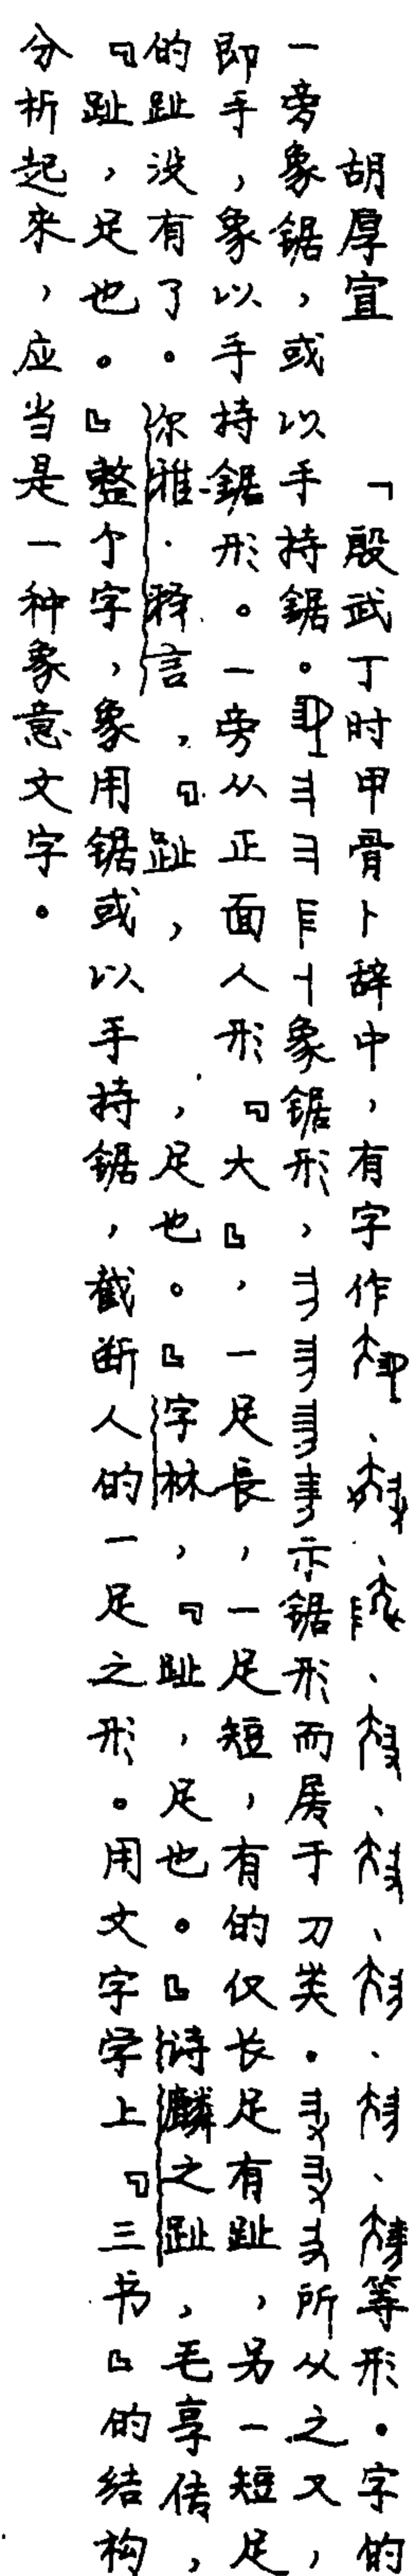 胡厚宣　「殷武丁时甲骨卜辞中，有字作、、、、、、、等形。字的
一旁象锯，或以手持锯。象锯形，示锯形而属于刀类。所从之又，
即手，象以手持锯形。一旁从正面人形『大』，一足長，一足短，有的仅长足有趾，另一短足，
的趾没有了。尔雅·释言，『趾，足也。』字林，『趾，足也。』诗麟之趾，毛享传，
『趾，足也。』整个字，象用锯或以手持锯，截断人的一足之形。用文字学上『三书』的结构
分析起來，应当是一种象意文字。